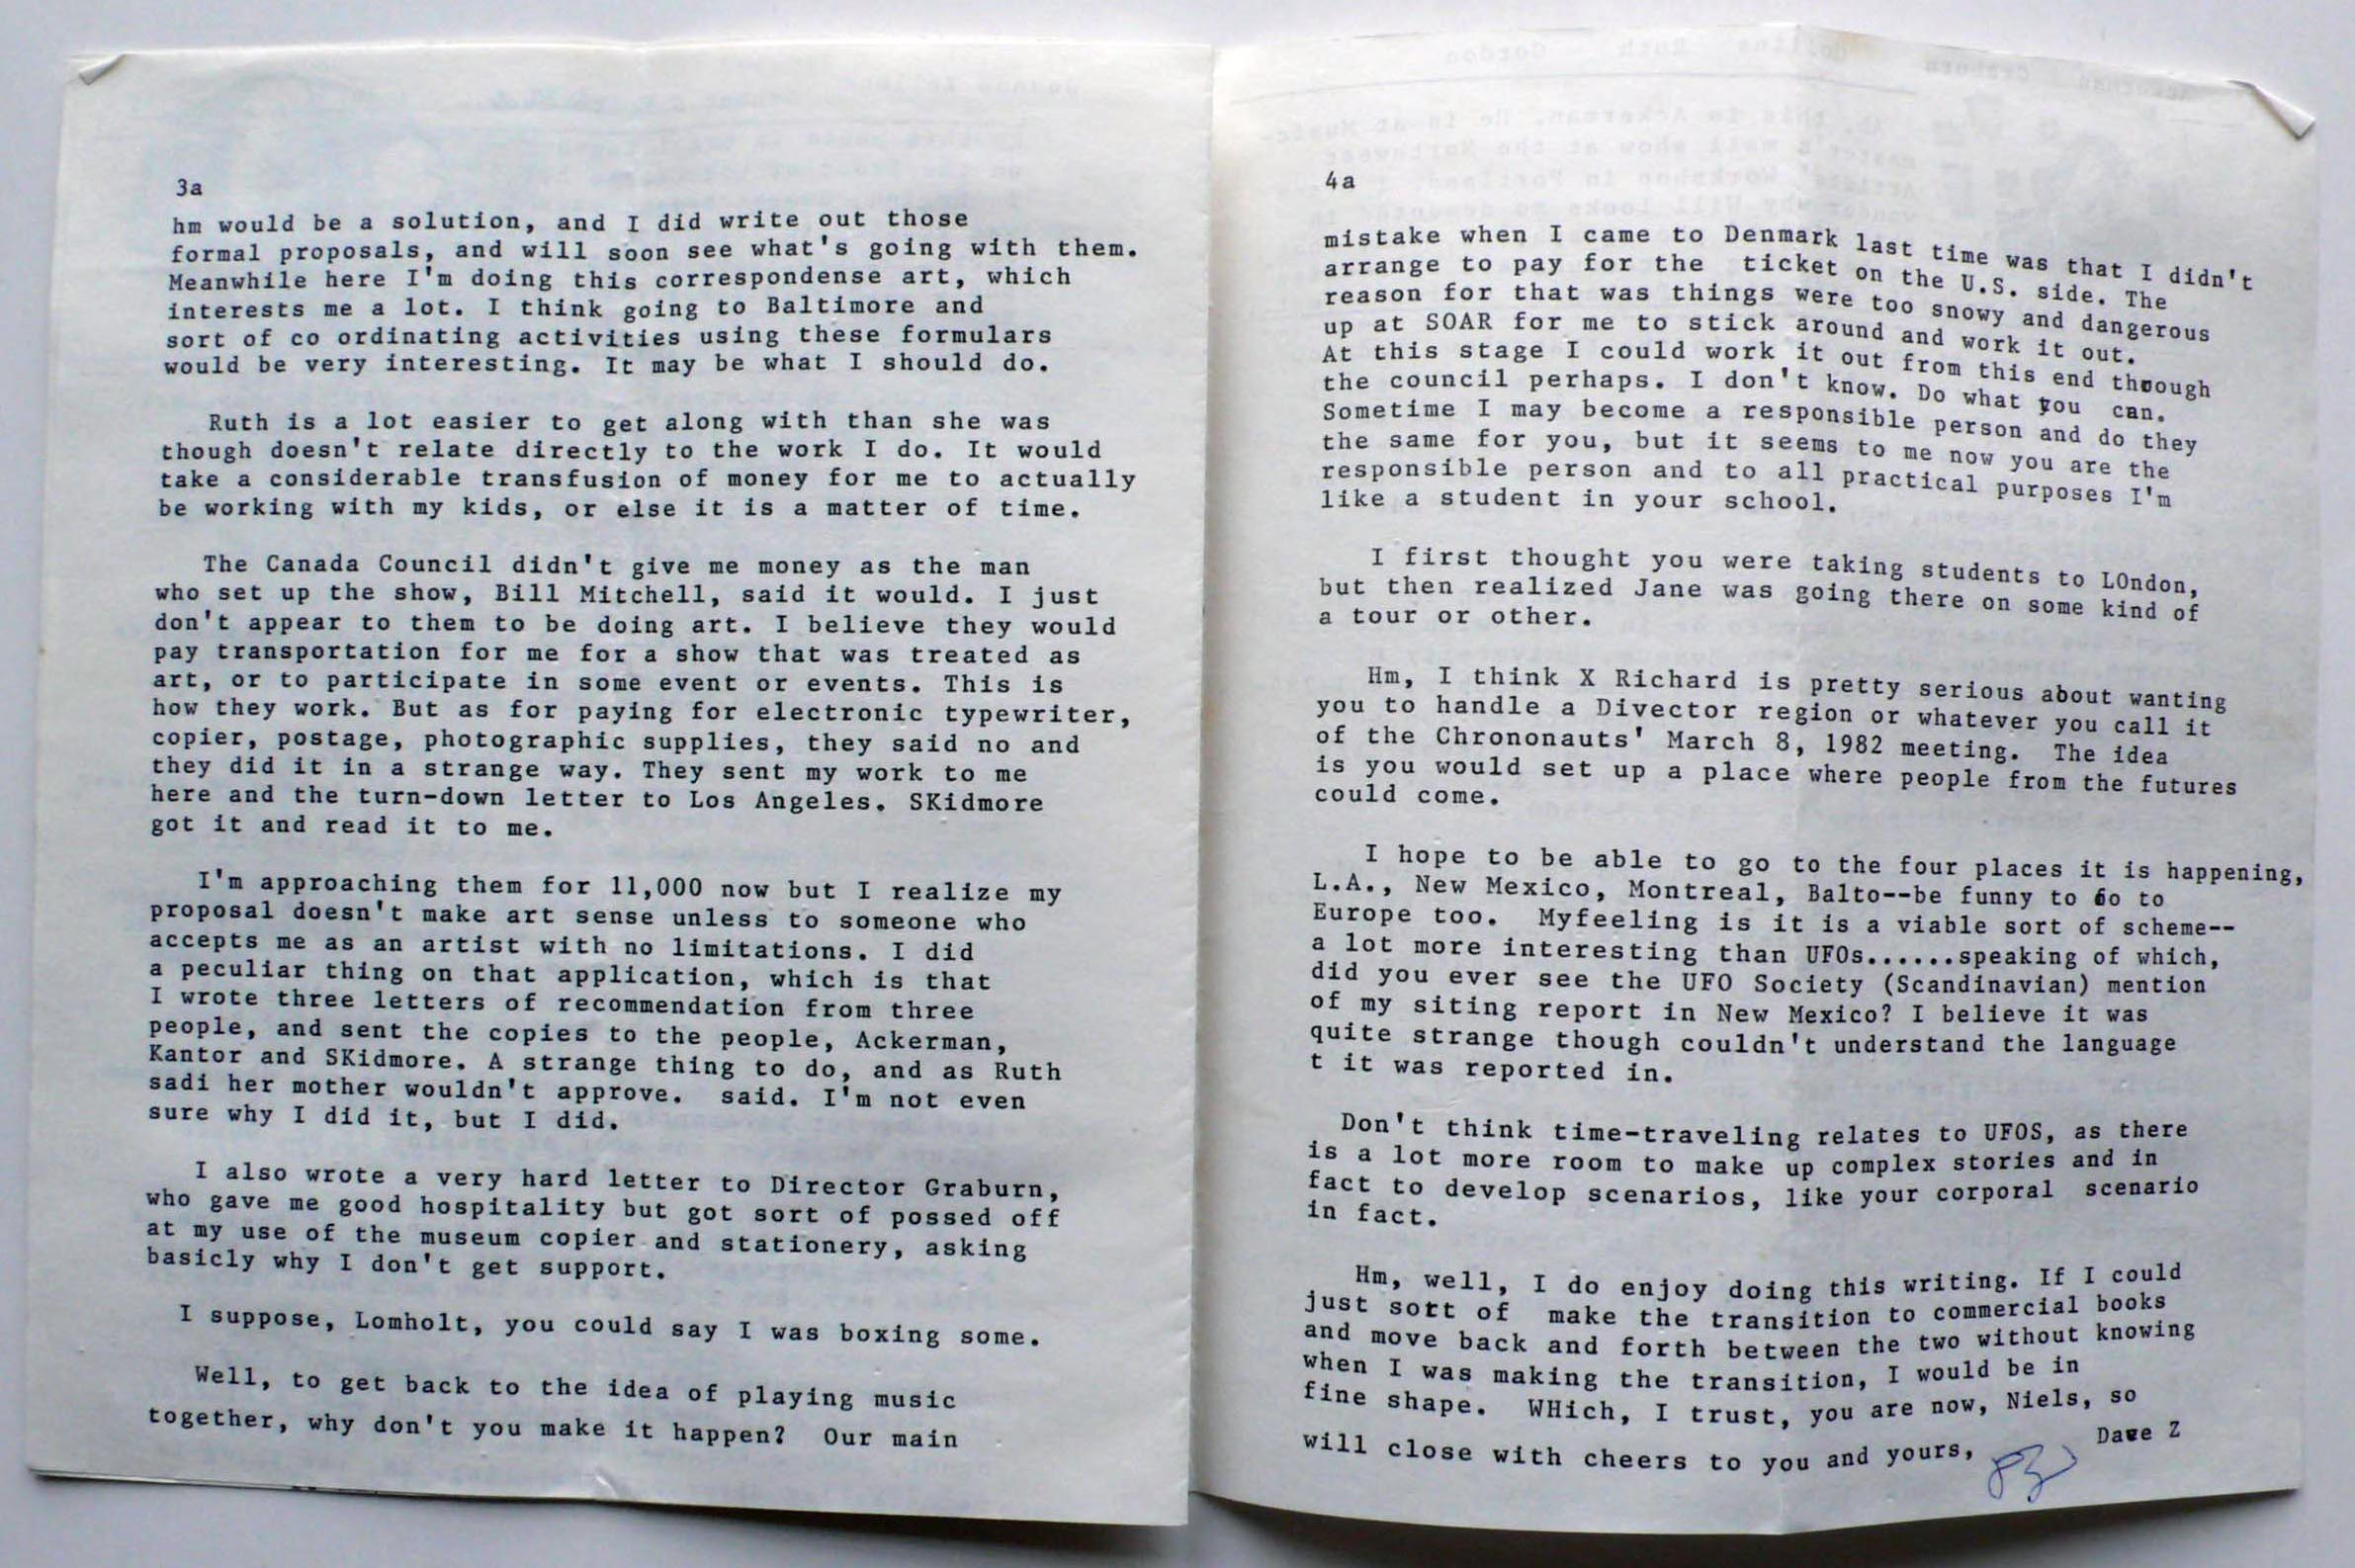 3a
hm would be a solution, and I did write out those
formal proposals, and will soon see what's going with them.
Meanwhile here I'm doing this correspondense art, which
interests me a lot. I think going to Baltimore and
sort of co ordinating activities using these formulars
would be very interesting. It may be what I should do.
Ruth is a lot easier to get along with than she was
though doesn't relate directly to the work I do. It would
take a considerable transfusion of money for me to actually
be working with my kids, or else it is a matter of time.
The Canada Council didn't give me money as the man
who set up the show, Bill Mitchell, said it would. I just
don't appear to them to be doing art. I believe they would
pay transportation for me for a show that was treated as
art, or to participate in some event or events. This is
how they work. But as for paying for electronic typewriter,
copier, postage, photographic supplies, they said no and
they did it in a strange way. They sent my work to me
here and the turn-down letter to Los Angeles. SKidmore
got it and read it to me.
I'm approaching them for 11,000 now but I realize my
proposal doesn't make art sense unless to someone who
accepts me as an artist with no limitations. I did
a peculiar thing on that application, which is that
I wrote three letters of recommendation from three
people, and sent the copies to the people, Ackerman,
Kantor and SKidmore. A strange thing to do, and as Ruth
sadi her mother wouldn't approve.  said. I'm not even
sure why I did it, but I did.
I also wrote a very hard letter to Director Graburn,
who gave me good hospitality but got sort of possed off
at my use of the museum copier and stationery, asking
basicly why I don't get support.
I suppose, Lomholt, you could say I was boxing some.
Well, to get back to the idea of playing music
together, why don't you make it happen?  Our main
4a
mistake when I came to Denmark last time was that I didn't
arrange to pay for the  ticket on the U.S. side. The
reason for that was things were too snowy and dangerous
up at SOAR for me to stick around and work it out.
At this stage I could work it out from this end through
the council perhaps. I don't know. Do what you can.
Sometime I may become a responsible person and do they
the same for you, but it seems to me now you are the
responsible person and to all practical purposes I'm
like a student in your school.
I first thought you were taking students to LOndon,
but then realized Jane was going there on some kind of
a tour or other.
Hm, I think X Richard is pretty serious about wanting
you to handle a Divector region or whatever you call it
of the Chrononauts' March 8, 1982 meeting.  The idea
is you would set up a place where people from the futures
could come.
I hope to be able to go to the four places it is happening,
L.A., New Mexico, Montreal, Balto--be funny to Go to
Europe too.  Myfeeling is it is a viable sort of scheme--
a lot more interesting than UFOs......speaking of which,
did you ever see the UFO Society (Scandinavian) mention
of my siting report in New Mexico? I believe it was
quite strange though couldn't understand the language
t it was reported in.
Don't think time-traveling relates to UFOS, as there
is a lot more room to make up complex stories and in
fact to develop scenarios, like your corporal  scenario
in fact.
Hm, well, I do enjoy doing this writing. If I could
just sort of  make the transition to commercial books
and move back and forth between the two without knowing
when I was making the transition, I would be in
fine shape.  WHich, I trust, you are now, Niels, so
will close with cheers to you and yours,
Dave Z